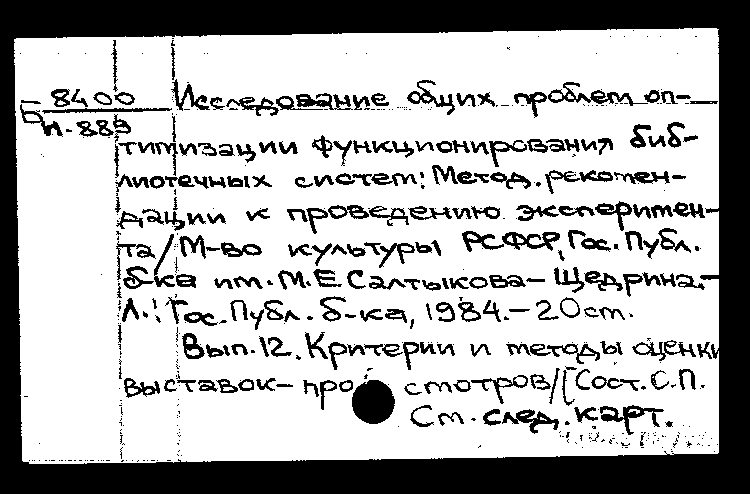 Б 8400
И-889
Исследование общих проблем оп-
тимизации функционирования биб-
лиотечных систем: Метод. рекомен-
дации к проведению эксперимен-
та/М-во культуры РСФСР, Гос. Публ.
б-ка им. М.Е. Салтыкова-Щедрина.-
Л.: Гос. Публ. б-ка, 1984.-20 см.
Вып. 12. Критерии и методы оценки
выставок-про смотров/[Сост. С.П.
См. след. карт.